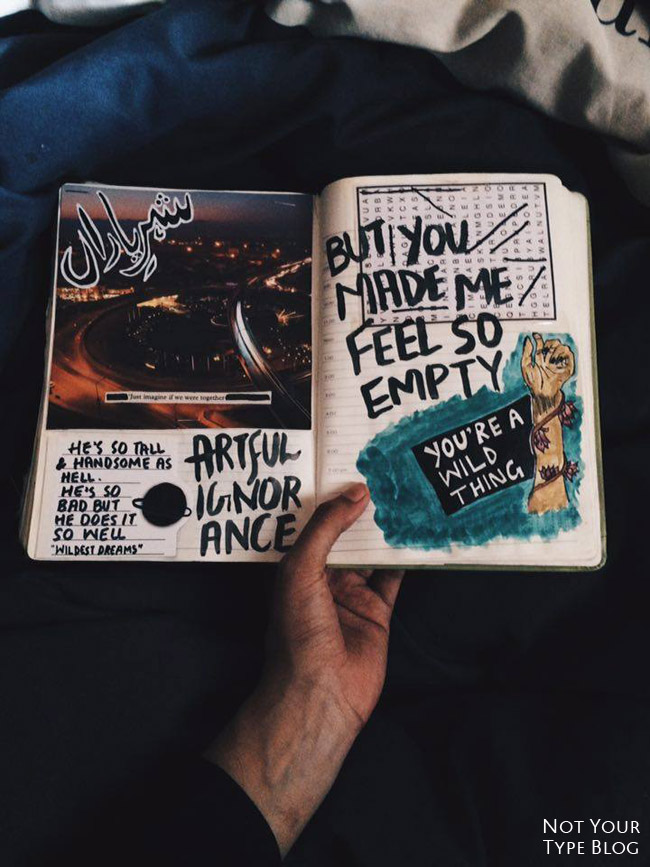 شهرِ باران
Just imagine if we were together
HE'S SO TALL
& HANDSOME AS
HELL.
HE'S SO
BAD BUT
HE DOES IT
SO WELL
"WILDEST DREAMS"
ARTFUL
IGNOR
ANCE
BUT YOU
MADE ME
FEEL SO
EMPTY
YOU'RE A
WILD
THING
NOT YOUR
TYPE BLOG